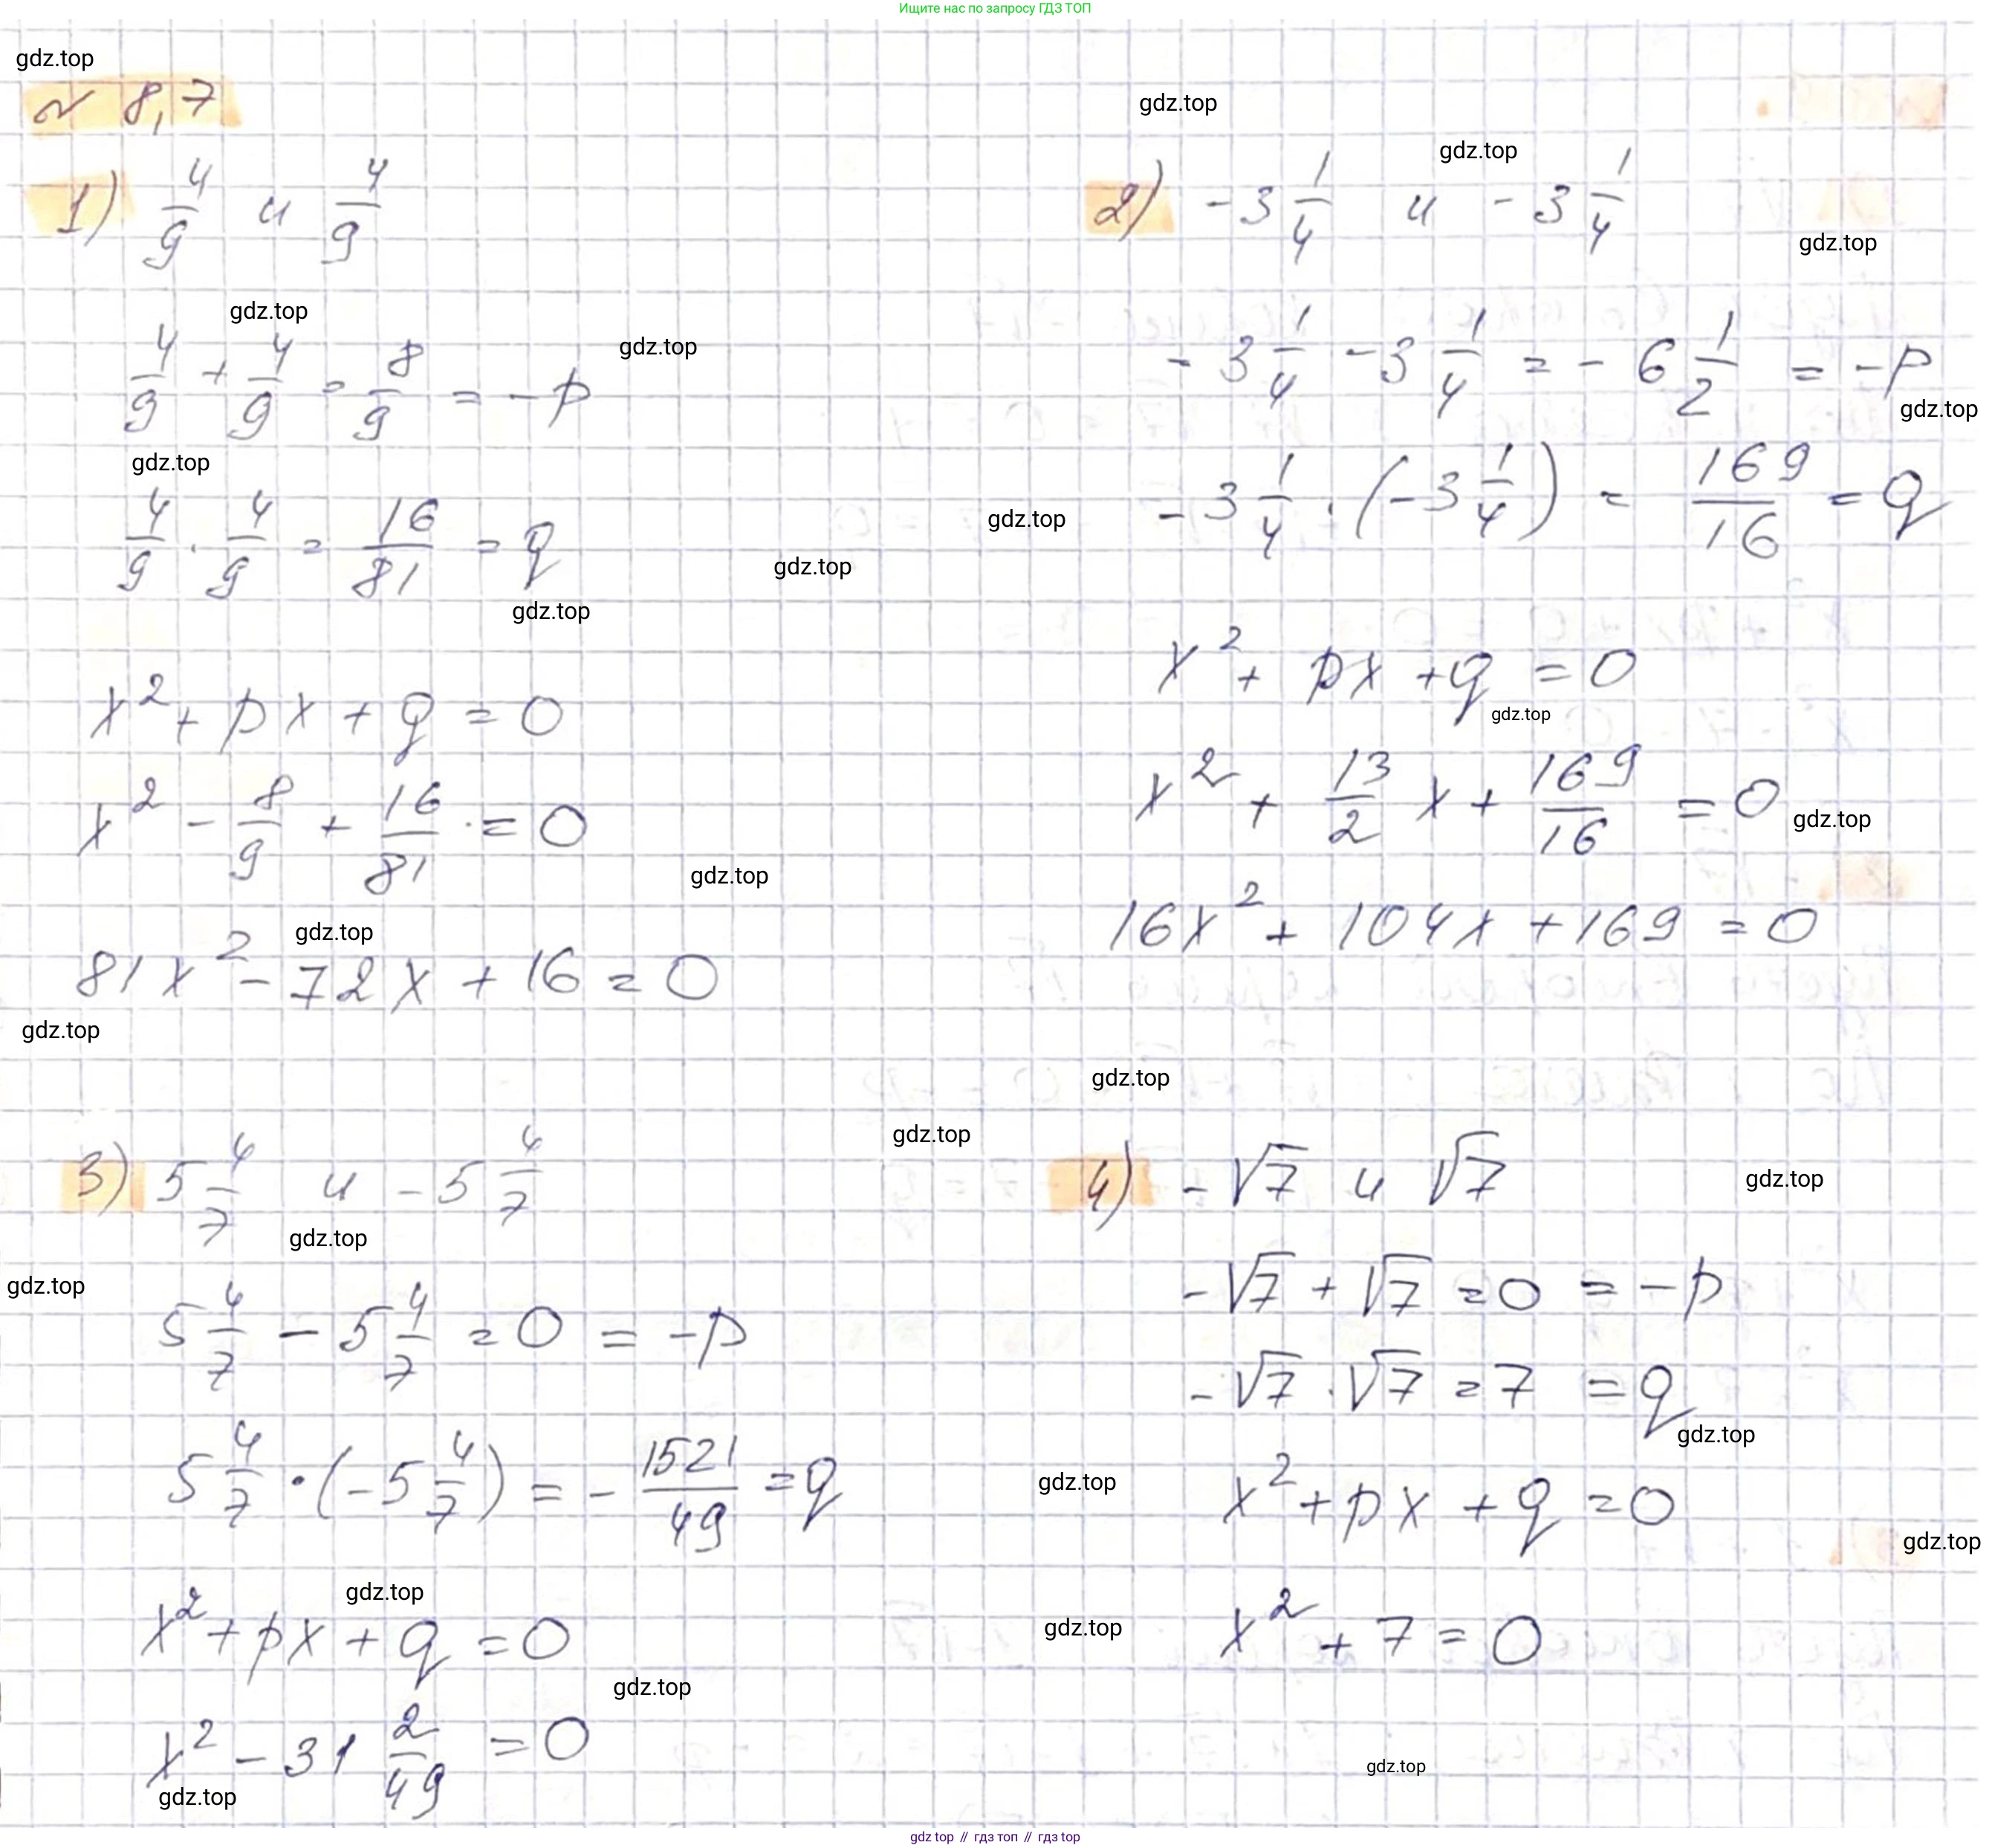 Ищите нас по запросу ГДЗ ТОП
gdz.top
№ 8,7
gdz.top
gdz.top
1) 4/9 и 4/9
2) -3 1/4 и -3 1/4
gdz.top
gdz.top
gdz.top
4/9 + 4/9 = 8/9 = -p
-3 1/4 -3 1/4 = -6 1/2 = -p
gdz.top
gdz.top
4/9 · 4/9 = 16/81 = q
-3 1/4 · (-3 1/4) = 169/16 = q
gdz.top
gdz.top
gdz.top
x² + px + q = 0
x² + px + q = 0
gdz.top
x² - 8/9 + 16/81 · = 0
x² + 13/2 x + 169/16 = 0
gdz.top
gdz.top
gdz.top
81x² - 72x + 16 = 0
16x² + 104x + 169 = 0
gdz.top
gdz.top
gdz.top
3) 5 4/7 и -5 4/7
4) -√7 и √7
gdz.top
gdz.top
gdz.top
5 4/7 - 5 4/7 = 0 = -p
-√7 + √7 = 0 = -p
-√7 · √7 = 7 = q
gdz.top
5 4/7 · (-5 4/7) = - 1521/49 = q
gdz.top
x² + px + q = 0
gdz.top
gdz.top
x² + px + q = 0
gdz.top
x² + 7 = 0
gdz.top
x² - 31 2/49 = 0
gdz.top
gdz.top
gdz top // гдз топ // гдз top